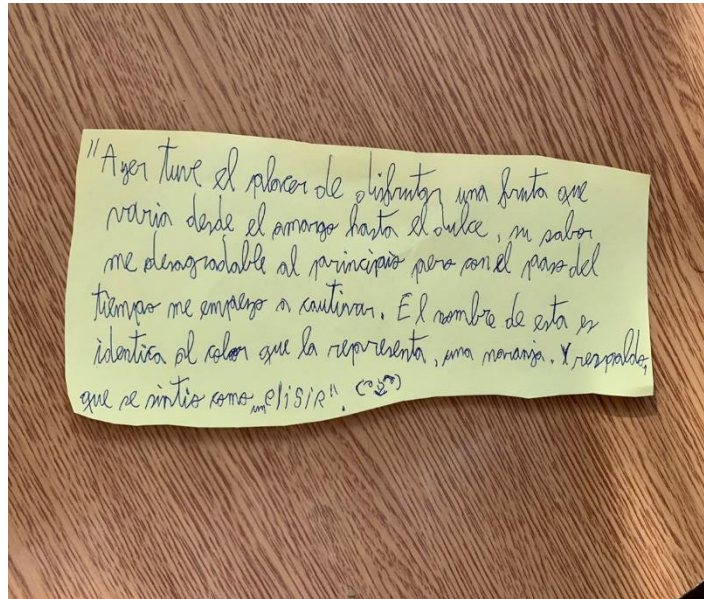 "Ayer tuve el placer de disfrutar una fruta que
varia desde el amargo hasta el dulce, su sabor
me desagradable al principio pero con el paso del
tiempo me empezo a cautivar. El nombre de esta es
identica al color que la representa, una naranja. Y respaldo,
que se sintio como un elisir".